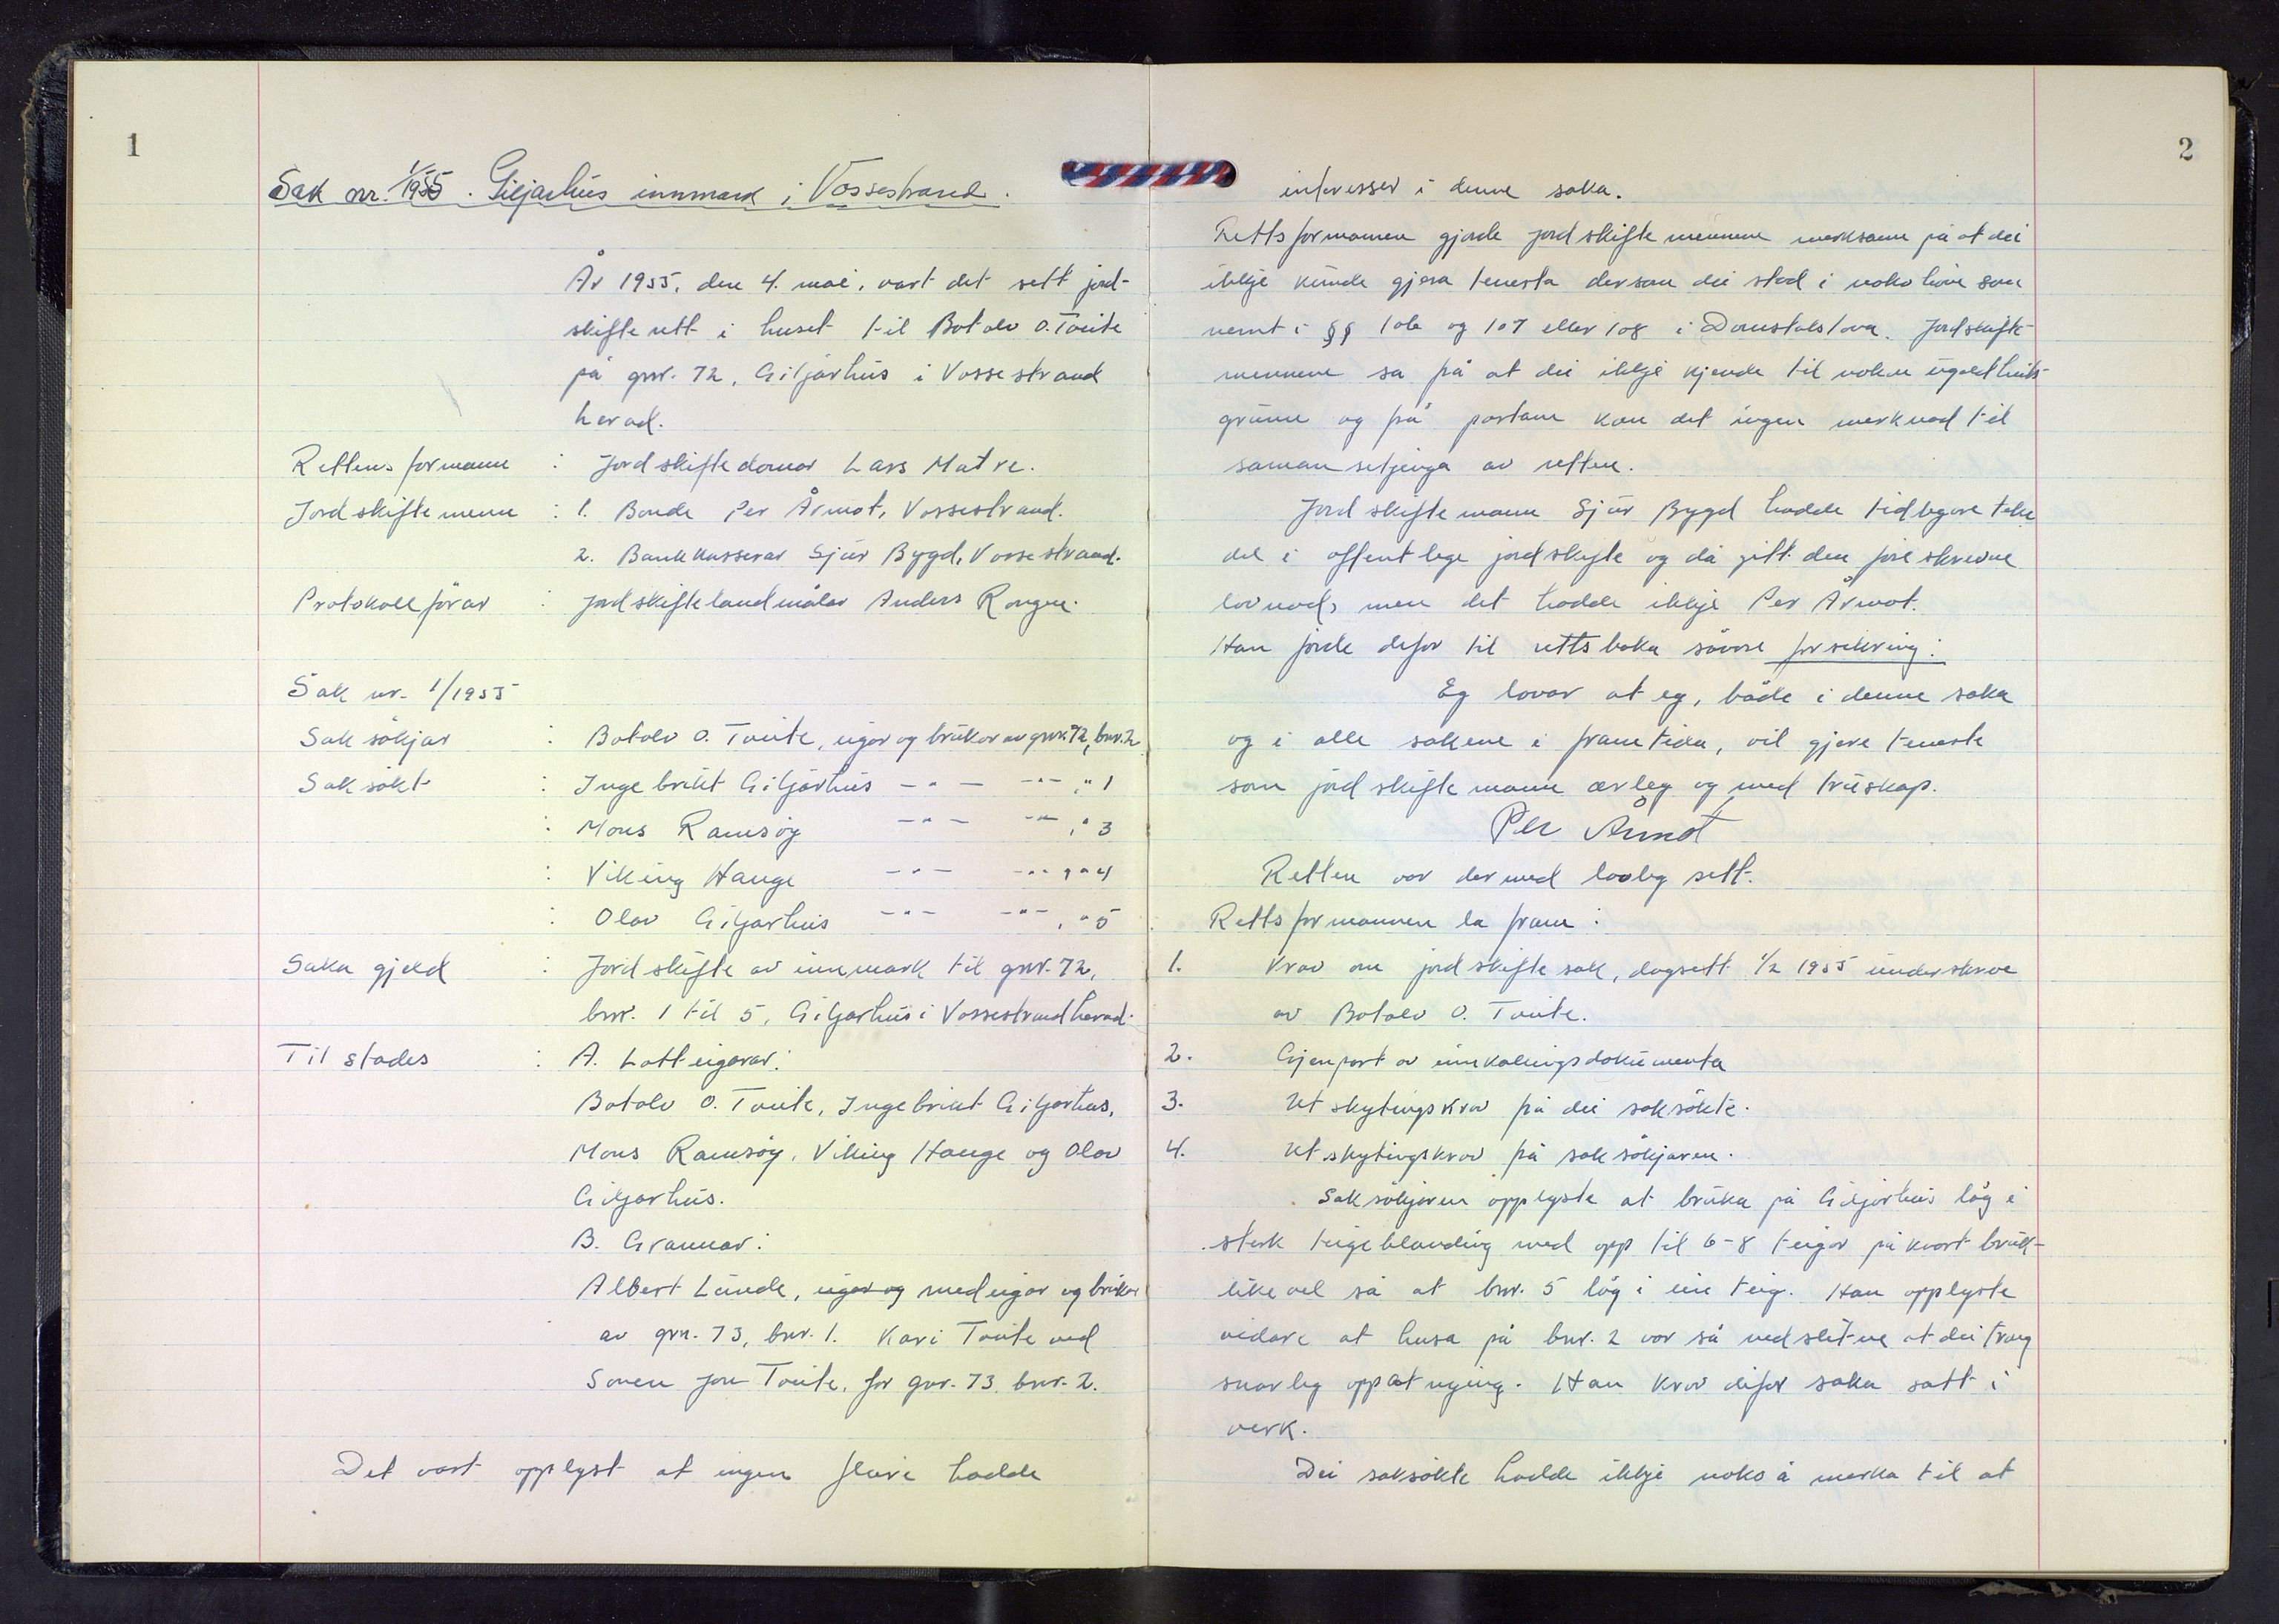 1
Sak nr. 1/1955. Giljarhus innmark i Vossestrand.
År 1955, den 4. mai, vart det sett jord-
skifterett i huset til Botolv O. Tvite
på gnr. 72, Giljarhus i Vossestrand
herad.
Rettens formann : Jordskiftedomar Lars Matre.
Jordskiftemenn : 1. Bonde Per Årmot, Vossestrand.
2. Bankkasserar Sjur Bygd, Vossestrand.
Protokollførar : Jordskiftelandmålar Anders Rongen.
Sak nr. 1/1955
Saksökjar : Botolv O. Tvite, eigar og brukar av gnr. 72, bnr. 2
Saksökt : Ingebrikt Giljarhus -"- -"- , " 1
: Mons Ramsöy -"- -"- , " 3
: Viking Hauge -"- -"- , " 4
: Olav Giljarhus -"- -"- , " 5
Saka gjeld : Jordskifte av innmark til gnr. 72,
bnr. 1 til 5, Giljarhus i Vossestrand herad.
Til stades : A. Lotteigarar:
Botolv O. Tvite, Ingebrikt Giljarhus,
Mons Ramsöy, Viking Hauge og Olav
Giljarhus.
B. Grannar:
Albert Lunde, eigar og medeigar og brukar
av gnr. 73, bnr. 1. Kari Tvite ved
sonen Jon Tvite, for gnr. 73, bnr. 2.
Det vart opplyst at ingen fleire hadde
2
interesser i denne saka.
Rettsformannen gjorde jordskiftemennene merksame på at dei
ikkje kunde gjera tenesta dersom dei stod i noko høve som
nemnt i §§ 106 og 107 eller 108 i Domstolslova. Jordskifte-
mennene sa frå at dei ikkje kjende til nokon ugildheits-
grunn og frå partane kom det ingen merknad til
samansetjinga av retten.
Jordskiftemann Sjur Bygd hadde tidlegare teke
del i offentlege jordskifte og då gitt den føreskrevne
lovnad, men det hadde ikkje Per Årmot.
Han gjorde difor til rettsboka såvore forsikring:
Eg lovar at eg, både i denne saka
og i alle sakene i framtida, vil gjere teneste
som jordskiftemann ærleg og med truskap.
Per Årmot
Retten var dermed lovleg sett.
Rettsformannen la fram:
1. Krav om jordskiftesak, dagsett 1/2 1955 underskreve
av Botolv O. Tvite.
2. Gjenpart av innkallingsdokumenta
3. Utskytingskrav frå dei saksökte.
4. Utskytingskrav frå saksökjaren.
Saksökjaren opplyste at bruka på Giljarhus låg i
sterk teigeblanding med opp til 6-8 teigar på kvart bruk -
likevel så at bnr. 5 låg i ein teig. Han opplyste
vidare at husa på bnr. 2 var så nedslitne at dei trong
snarleg oppatnying. Han krov difor saka satt i
verk.
Dei saksökte hadde ikkje noko å merka til at